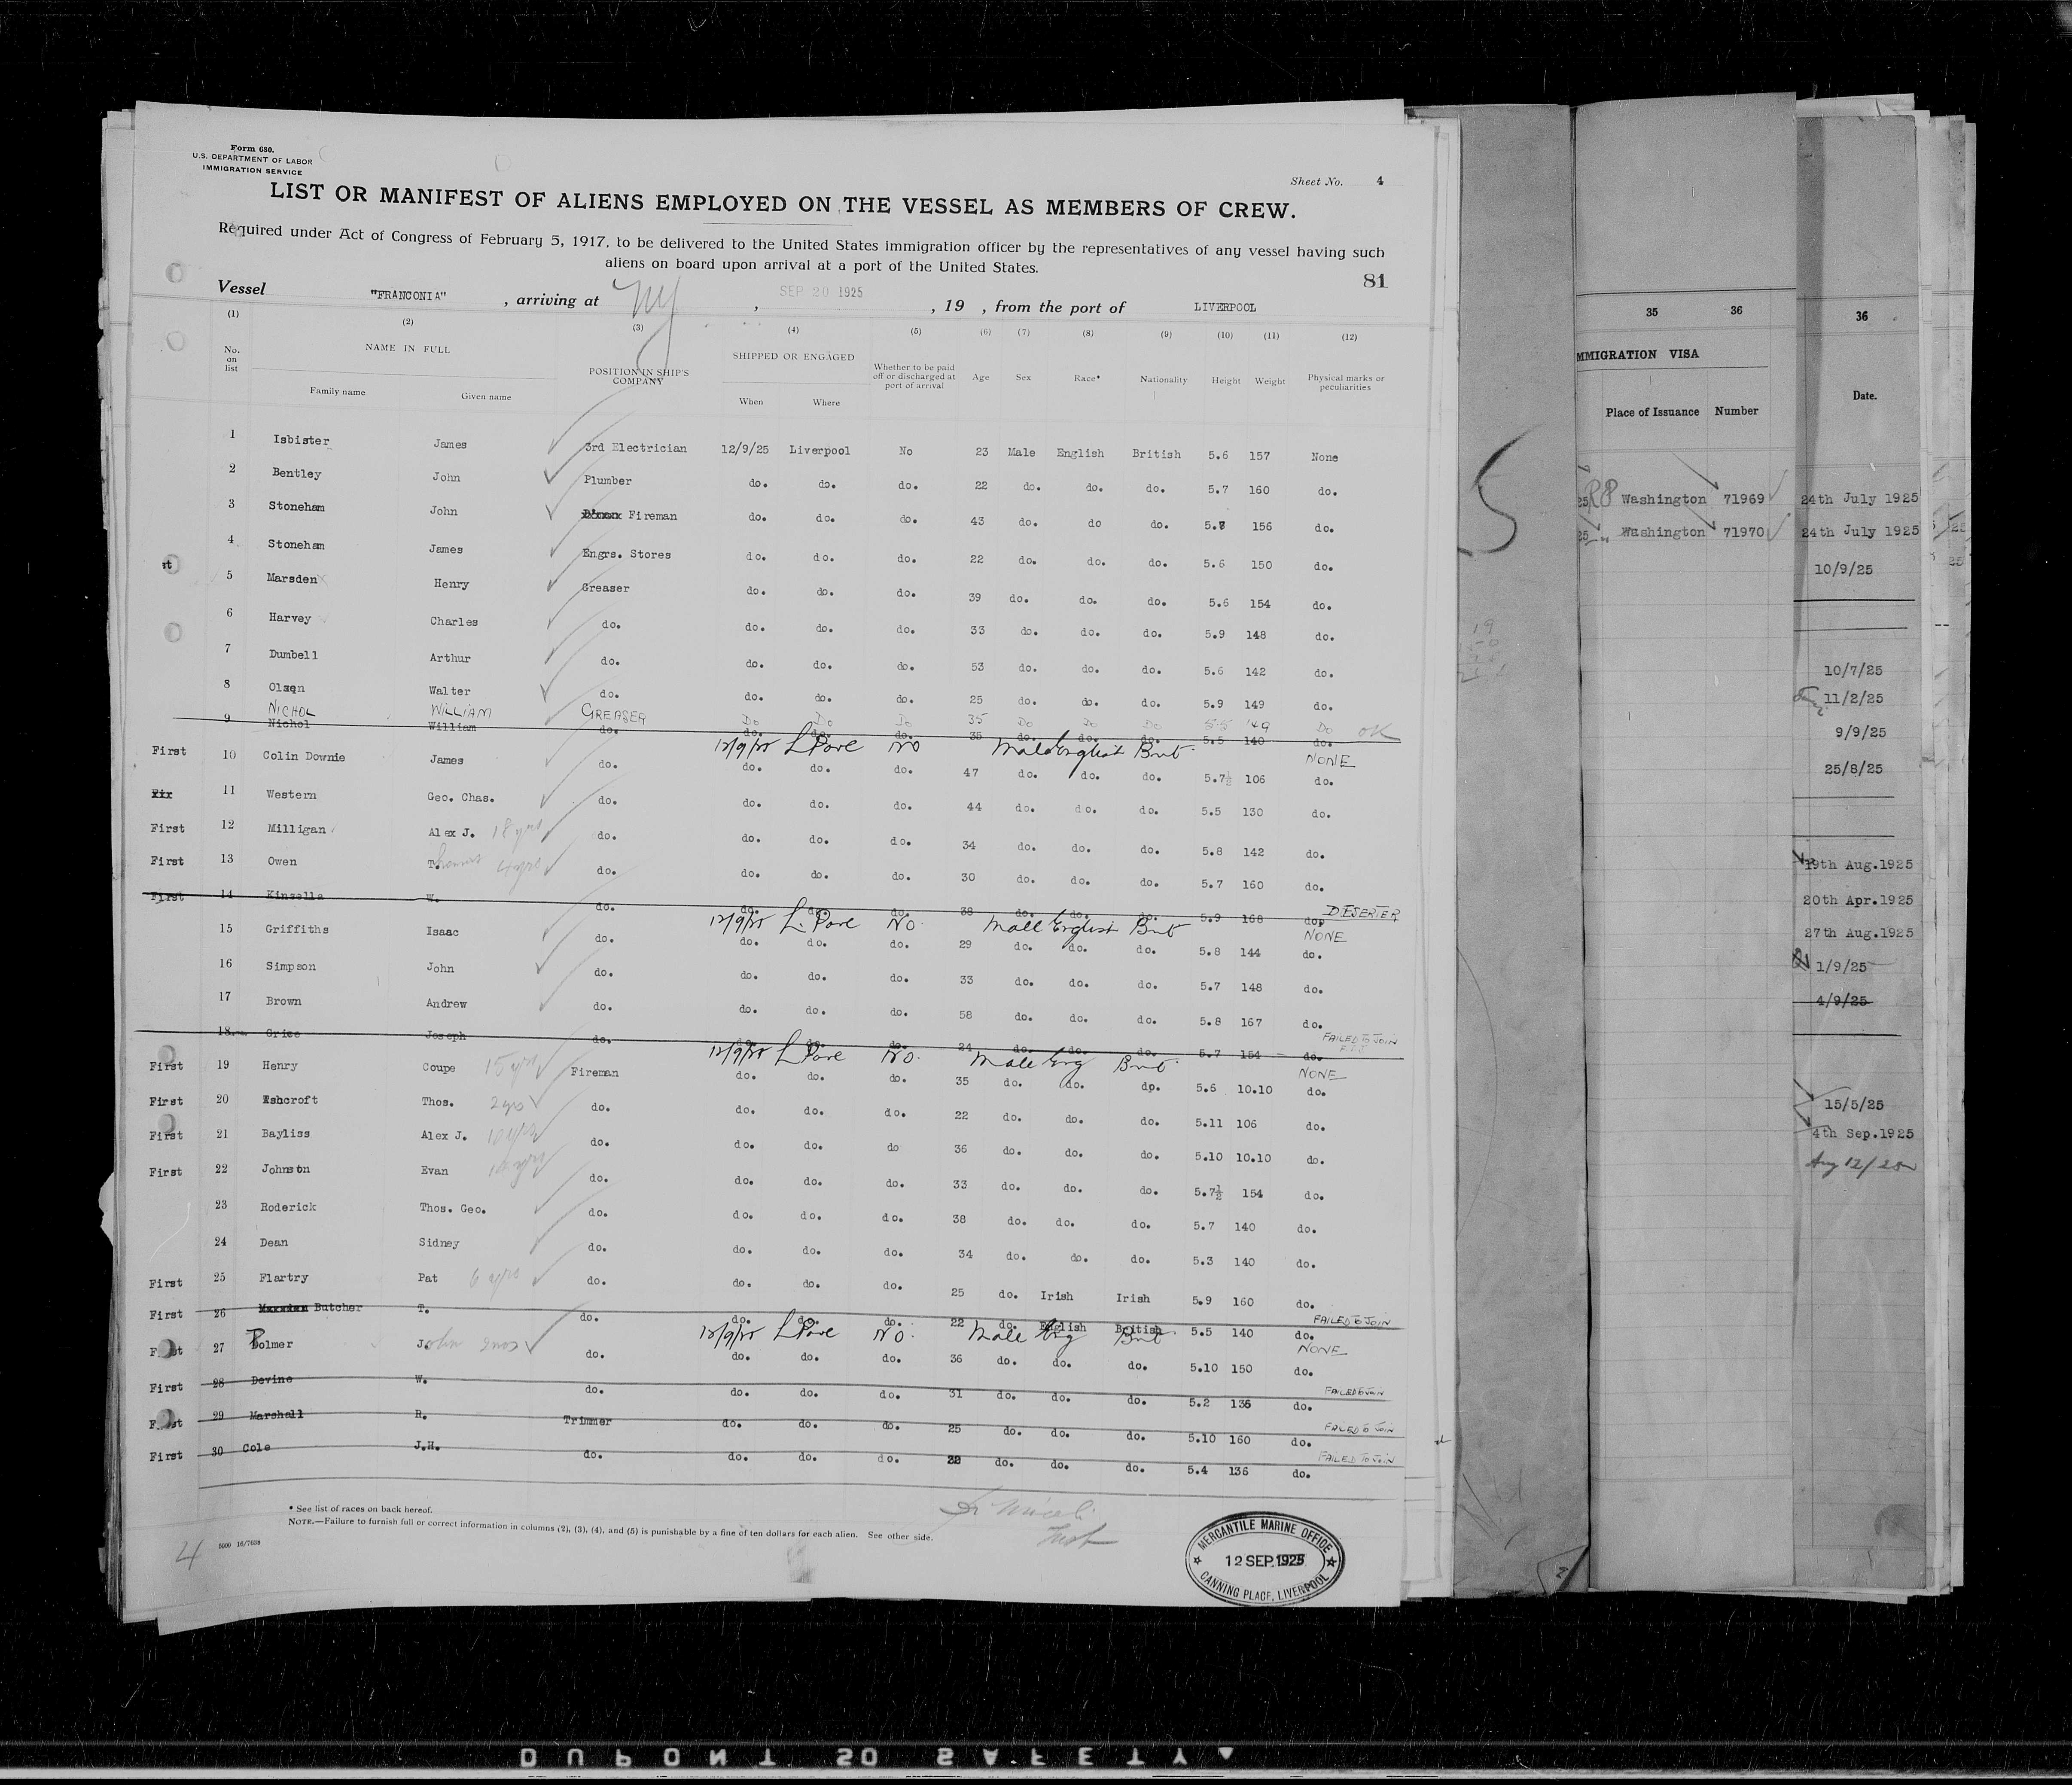 Form 680.
U.S. DEPARTMENT OF LABOR
IMMIGRATION SERVICE
Sheet No. 4
LIST OR MANIFEST OF ALIENS EMPLOYED ON THE VESSEL AS MEMBERS OF CREW.
Required under Act of Congress of February 5, 1917, to be delivered to the United States immigration officer by the representatives of any vessel having such
aliens on board upon arrival at a port of the United States.
81
Vessel "FRANCONIA" , arriving at NY , SEP 20 1925 , 19 , from the port of LIVERPOOL
(1) (2) (3) (4) (5) (6) (7) (8) (9) (10) (11) (12)
No. on list NAME IN FULL Family name Given name POSITION IN SHIP'S COMPANY SHIPPED OR ENGAGED When Where Whether to be paid off or discharged at port of arrival Age Sex Race* Nationality Height Weight Physical marks or peculiarities
1 Isbister James 3rd Electrician 12/9/25 Liverpool No 23 Male English British 5.6 157 None
2 Bentley John Plumber do. do. do. 22 do. do. do. 5.7 160 do.
3 Stoneham John Fireman do. do. do. 43 do. do do. 5.8 156 do.
st 4 Stoneham James Engrs. Stores do. do. do. 22 do. do. do. 5.6 150 do.
5 Marsden Henry Greaser do. do. do. 39 do. do. do. 5.6 154 do.
6 Harvey Charles do. do. do. do. 33 do. do. do. 5.9 148 do.
7 Dumbell Arthur do. do. do. do. 53 do. do. do. 5.6 142 do.
8 Olsen Walter do. do. do. do. 25 do. do. do. 5.9 149 do.
NICHOL WILLIAM GREASER Do Do Do 35 Do Do Do 5.5 149 Do OK
9 Nichol William do. do. do. do. 35 do. do. do. 5.5 140 do.
12/9/25 LPore NO Male English Brit NONE
First 10 Colin Downie James do. do. do. do. 47 do. do. do. 5.7½ 106 do.
11 Western Geo. Chas. do. do. do. do. 44 do. do. do. 5.5 130 do.
First 12 Milligan Alex J. 18 yrs do. do. do. do. 34 do. do. do. 5.8 142 do.
First 13 Owen T. do. do. do. do. 30 do. do. do. 5.7 160 do.
First 14 Kinsella W. do. do. do. do. 38 do. do. do. 5.9 168 do. DESERTER
12/9/25 L. Pore No. Male English Brit NONE
15 Griffiths Isaac do. do. do. do. 29 do. do. do. 5.8 144 do.
16 Simpson John do. do. do. do. 33 do. do. do. 5.7 148 do.
17 Brown Andrew do. do. do. do. 58 do. do. do. 5.8 167 do.
18 Grice Joseph do. do. do. do. 24 do. do. do. 5.7 154 do. FAILED TO JOIN
12/9/25 LPore No. Male Eng Brit NONE
First 19 Henry Coupe 15 yrs Fireman do. do. do. 35 do. do. do. 5.6 10.10 do.
First 20 Ashcroft Thos. 2 yrs do. do. do. do. 22 do. do. do. 5.11 106 do.
First 21 Bayliss Alex J. 10 yrs do. do. do. do 36 do. do. do. 5.10 10.10 do.
First 22 Johnston Evan do. do. do. do. 33 do. do. do. 5.7½ 154 do.
23 Roderick Thos. Geo. do. do. do. do. 38 do. do. do. 5.7 140 do.
24 Dean Sidney do. do. do. do. 34 do. do. do. 5.3 140 do.
First 25 Flartry Pat 6 yrs do. do. do. do. 25 do. Irish Irish 5.9 160 do.
First 26 Butcher T. do. do. do. do. 22 do. English British 5.5 140 do. FAILED TO JOIN
12/9/25 LPore No. Male Eng Brit NONE
First 27 Bolmer John 2 mos do. do. do. do. 36 do. do. do. 5.10 150 do.
First 28 Devine W. do. do. do. do. 31 do. do. do. 5.2 136 do. FAILED TO JOIN
First 29 Marshall R. Trimmer do. do. do. 25 do. do. do. 5.10 160 do. FAILED TO JOIN
First 30 Cole J.H. do. do. do. do. do. do. do. 5.4 136 do. FAILED TO JOIN
* See list of races on back hereof.
NOTE.—Failure to furnish full or correct information in columns (2), (3), (4), and (5) is punishable by a fine of ten dollars for each alien. See other side.
5000 16/7638
4
MERCANTILE MARINE OFFICE
12 SEP. 1925
CANNING PLACE, LIVERPOOL
35 36
MMIGRATION VISA
Place of Issuance Number
25 R8 Washington 71969
25 Washington 71970
36
Date.
24th July 1925
24th July 1925
10/9/25
10/7/25
11/2/25
9/9/25
25/8/25
19th Aug.1925
20th Apr.1925
27th Aug.1925
1/9/25
4/9/25
15/5/25
4th Sep.1925
Aug 12/25
DUPONT SO SAFETY